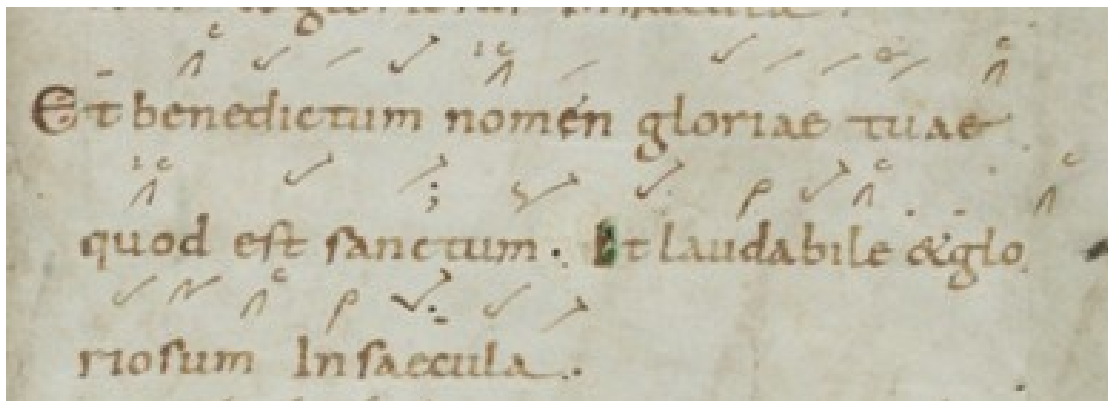 Et benedictum nomen gloriae tuae
quod est sanctum. Et laudabile & glo
riosum In saecula.